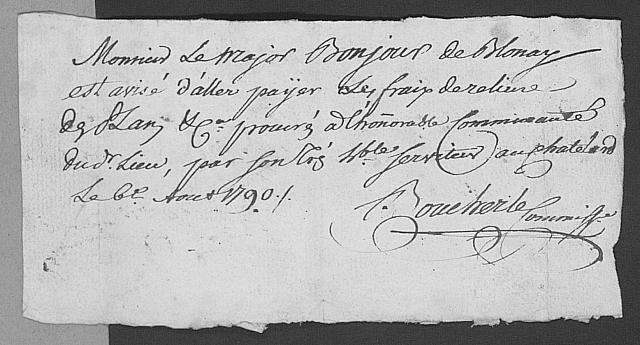 Monsieur Le Major Bonjour de Blonay
est avisé d'aller payer Les fraix de relieure
des Plans &Ca procuré à l'hoñorable Communauté
du dt. Lieu, par son très hble Serviteur, au Chatelard
Le 6e. Aout 1790 /.
Boucherle Commiss.e